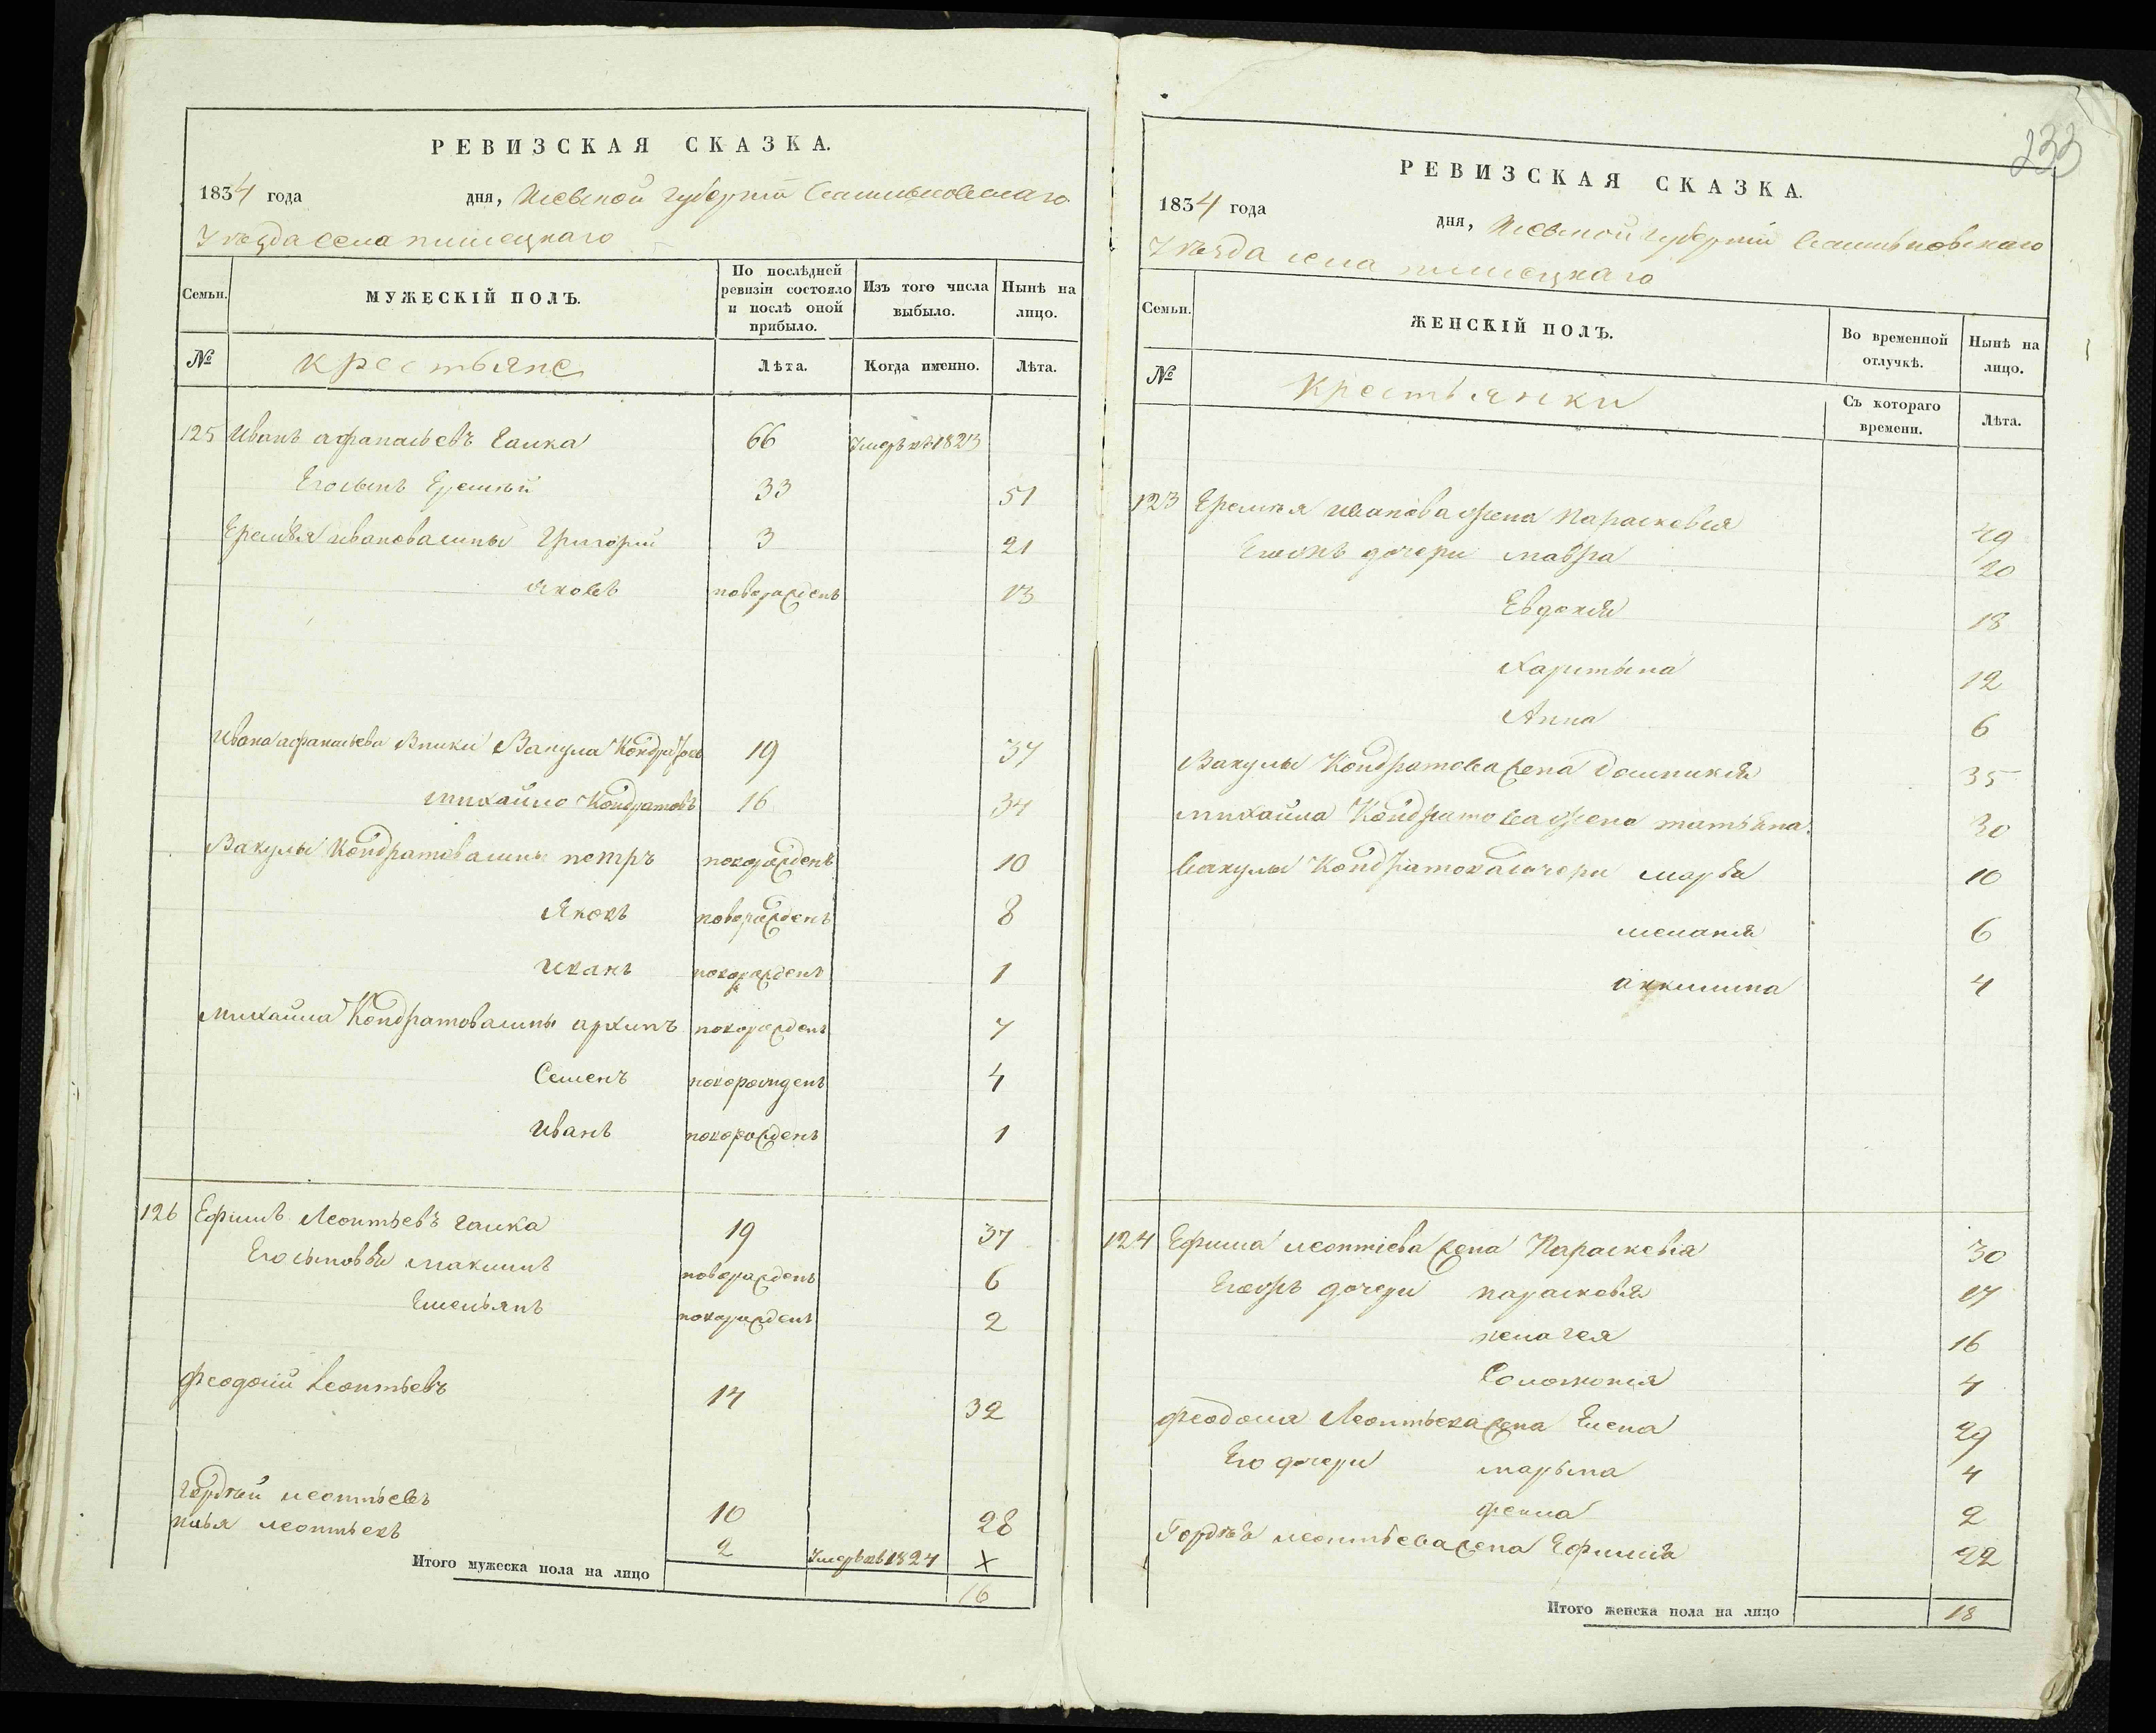 РЕВИЗСКАЯ СКАЗКА.
1834 года дня, Киевской губернии Сквирскаго
Уезда села пилиецкаго
Семьи. МУЖЕСКІЙ ПОЛЪ. По послѣдней ревизіи состояло и послѣ оной прибыло. Изъ того числа выбыло. Нынѣ на лицо.
№ крестьяне Лѣта. Когда именно. Лѣта.
125 Иванъ афанасьевъ Галка 66 Умеръ въ 1823
Его сынъ Еремѣй 33 51
Еремѣя иванова сыны Григорий 3 21
Яковъ новорожденъ 13
Ивана афанасьева Внуки Вакула Кондратовъ 19 37
михайло Кондратовъ 16 34
Вакулы Кондратова сыны петръ новорожденъ 10
Яковъ новорожденъ 8
Иванъ новорожденъ 1
михайла Кондратова сыны архипъ новорожденъ 7
Семенъ новорожденъ 4
Иванъ новорожденъ 1
126 Ефимъ Леонтьевъ галка 19 37
Его сыновья максимъ новорожденъ 6
Емельянъ новорожденъ 2
феодосій Леонтьевъ 14 32
Гордѣй леонтьевъ 10 28
илья леонтьевъ 2 Умеръ въ 1827 ×
Итого мужеска пола на лицо 16
233
РЕВИЗСКАЯ СКАЗКА.
1834 года дня, Киевской губерніи
Уезда села
Семьи. ЖЕНСКІЙ ПОЛЪ. Во временной отлучкѣ. Нынѣ на лицо.
№ Крестьянки Съ котораго времени. Лѣта.
123 Еремѣя иванова жена Парасковея 49
дочери мавра 20
Евдокія 18
Харитына 12
Анна 6
Вакулы Кондратова жена Домникія 35
михайла Кондратова жена татьяна 30
Вакулы Кондратова дочери марья 10
меланія 6
аккилина 4
124 Ефима леонтіева жена Параскевія 30
дочери парасковья 17
пелагея 16
Соломонія 4
феодосия Леонтьева жена Елена 29
Его дочери марына 4
фекла 2
Гордѣя леонтьева жена Ефимія 22
Итого женска пола на лицо 18